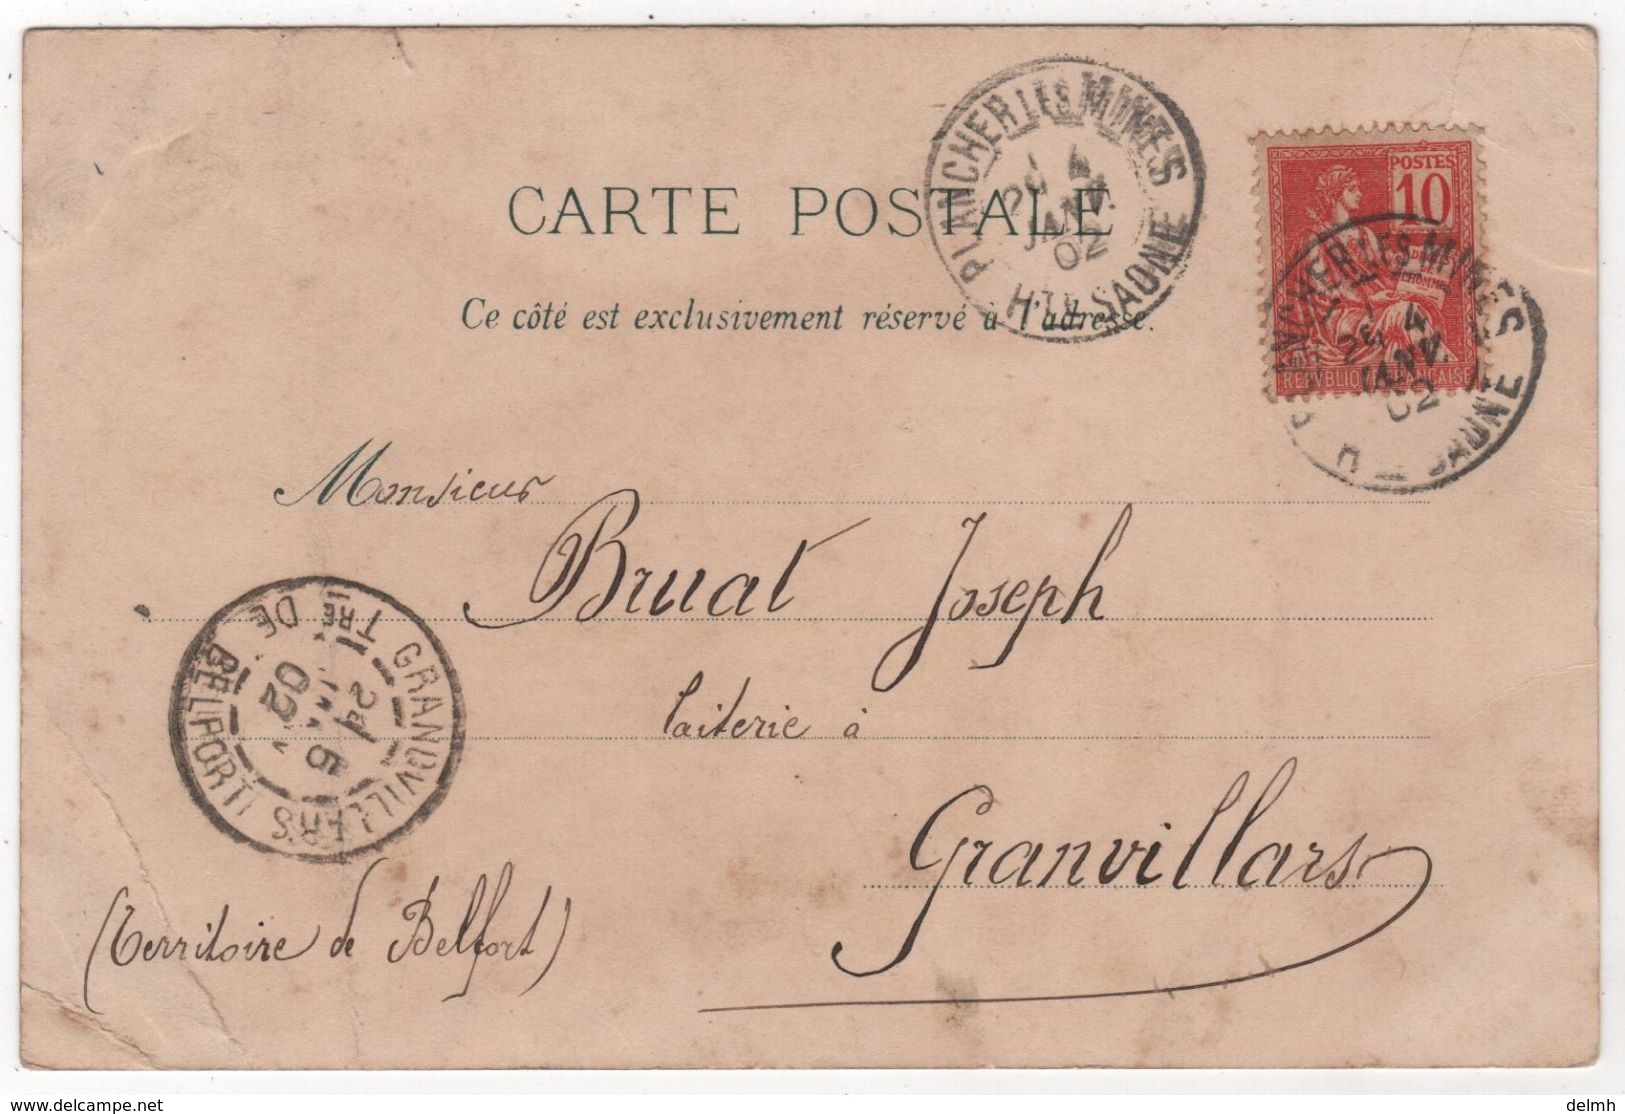 CARTE POSTALE
Ce côté est exclusivement réservé à l'adresse.
PLANCHER LES MINES
4
JANV.
02
HTE SAONE
POSTES
10
REPVBLIQUE FRANÇAISE
LES MINES
4
JANV.
02
SAONE
Monsieur
Bruat Joseph
laiterie à
Granvillars
(Territoire de Belfort)
GRANDVILLARS
5
02
TRE DE BELFORT
www.delcampe.net
delmh